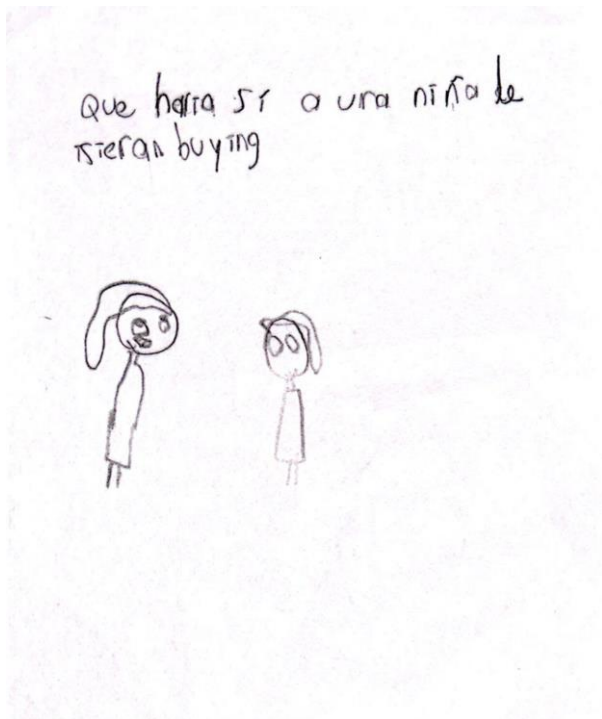 que haria si a una niña le
isieran buying